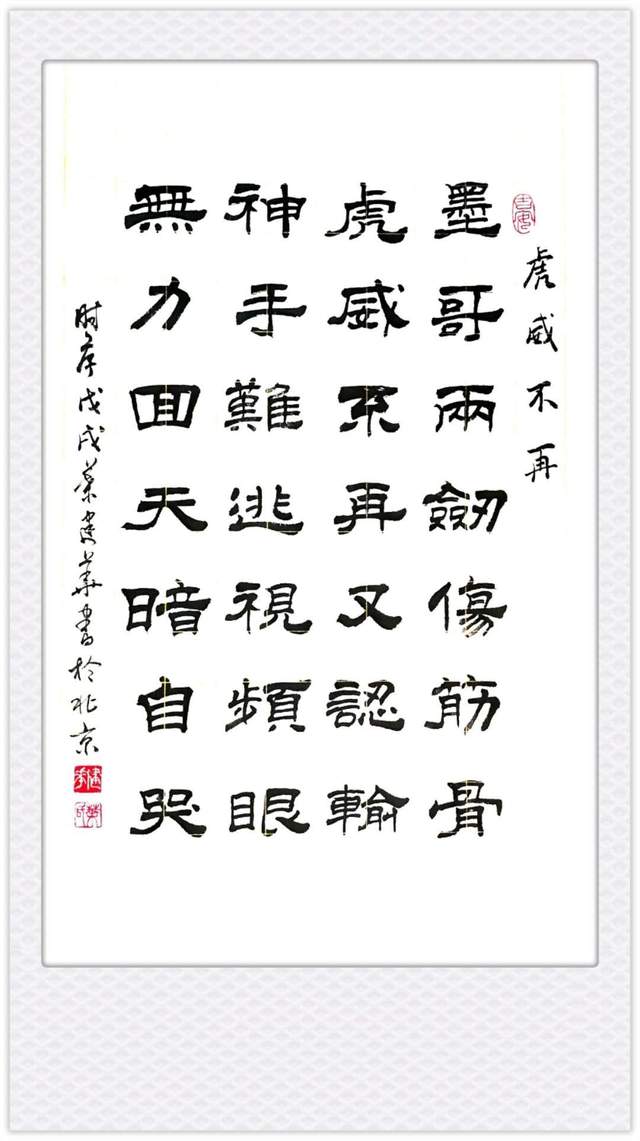 虎威不再
墨哥兩劒傷筋骨
虎威不再又認輸
神手難逃視頻眼
無力回天暗自哭
时在戊戌葉建華書於北京